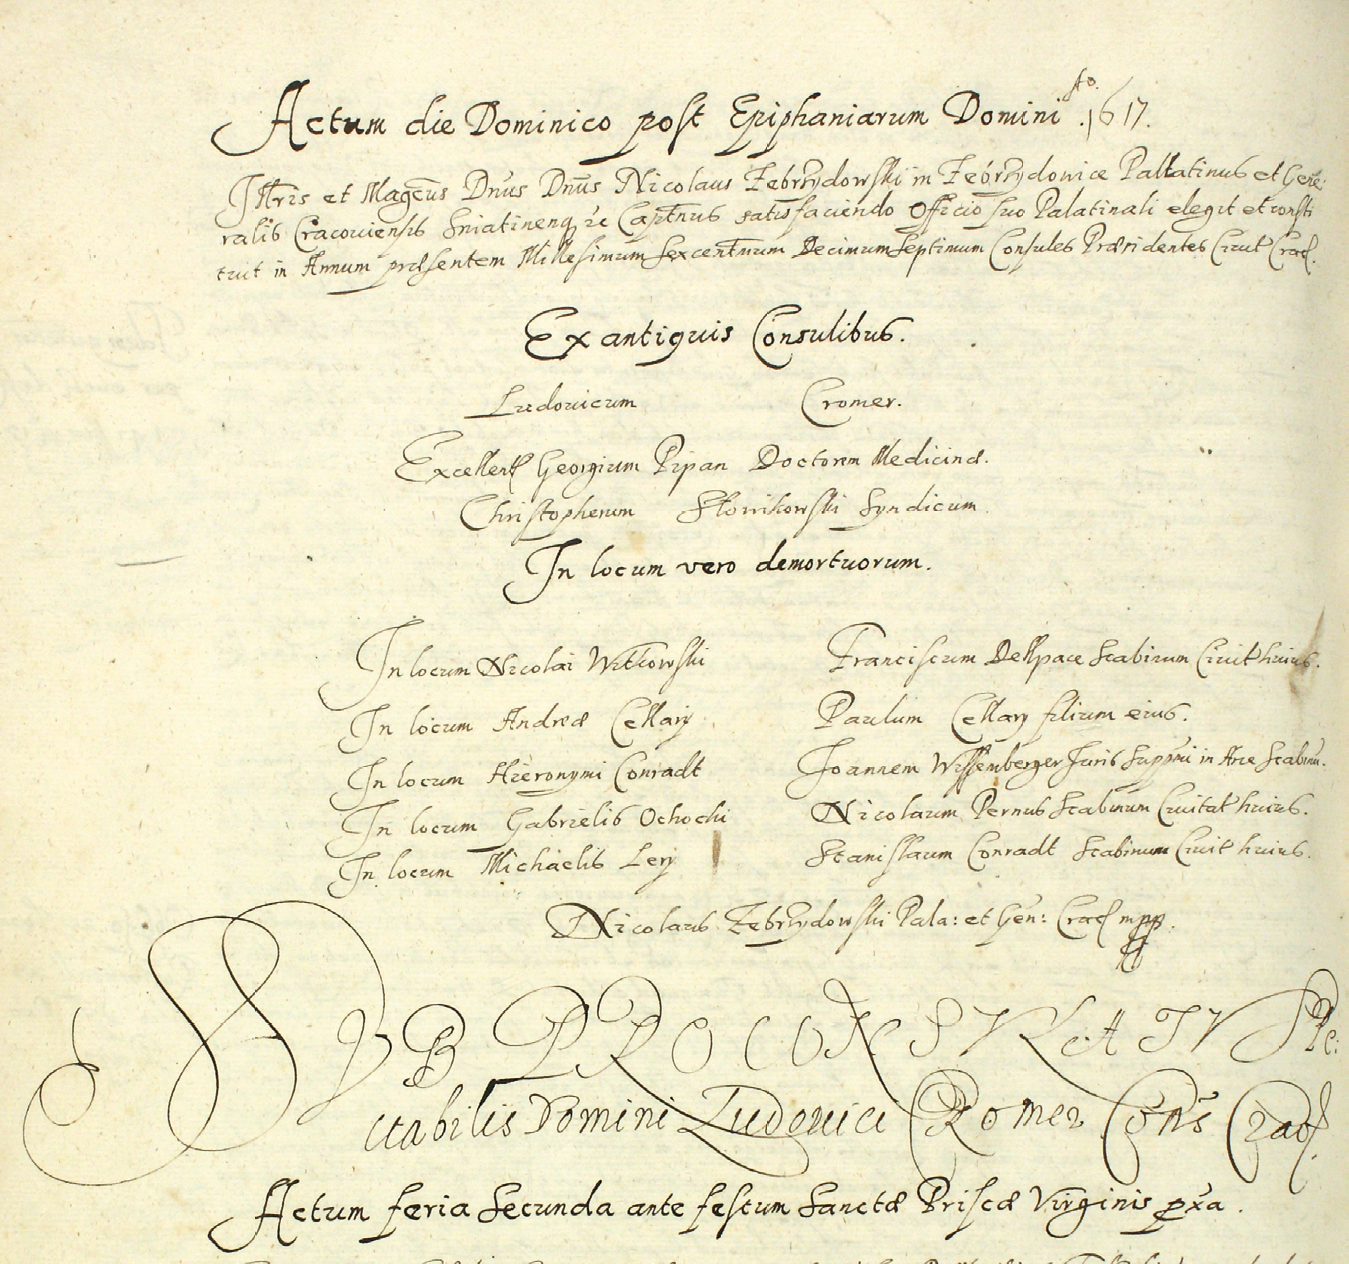 Actum die Dominico post Epiphaniarum Domini Ao. 1617.
Illris et Magcus Dnus Dnus Nicolaus Zebrzydowski in Zebrzydowice Pallatinus et Gene
ralis Cracouiensis Sniatinenq zc Captnus satisfaciendo Officio suo Palatinali elegit et consti
tuit in Annum præsentem Millesimum Sexcentmum Decimum Septimum Consules Præsidentes Ciuit Crac.
Ex antiquis Consulibus.
Ludouicum Cromer.
Excellent Georgium Pipan Doctorem Medicinæ.
Christopherum Słowikowski Syndicum.
In locum vero demortuorum.
In locum Nicolai Witkowski Franciscum Dellpace Scabinum Ciuit huius.
In locum Andreæ Cellarij Paulum Cellary filium eius.
In locum Hieronymi Conradt Joannem Wissemberger Juris Suppmi in Arce Scabinu.
In locum Gabrielis Ochocki Nicolaum Pernus Scabinum Ciuitat huius.
In locum Michaelis Lerj Stanislaum Conradt Scabinum Ciuit huius.
Nicolaus Zebrzydowski Pala: et Gen: Crac mpp.
SVB PROCONSVLATV SPe:
ctabilis Domini Ludouici CRomer Cons Crac.
Actum feria Secunda ante festum Sanctæ Priscæ Virginis pxa.